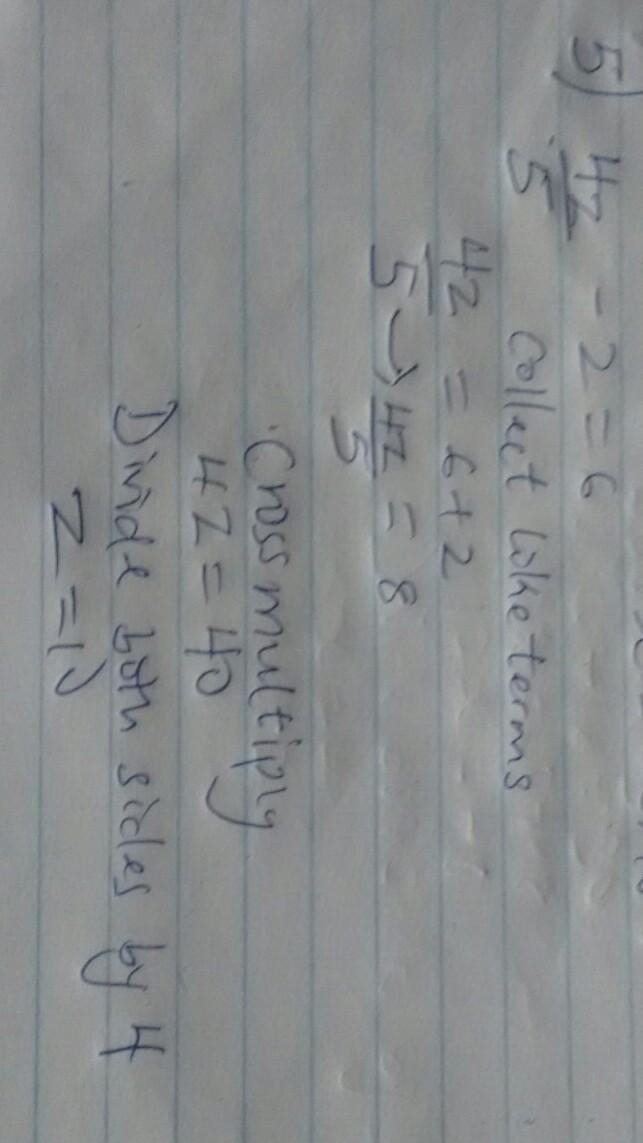 5) 4z/5 - 2 = 6
Collect like terms
4z/5 = 6+2
→ 4z/5 = 8
Cross multiply
4z = 40
Divide both sides by 4
z = 10